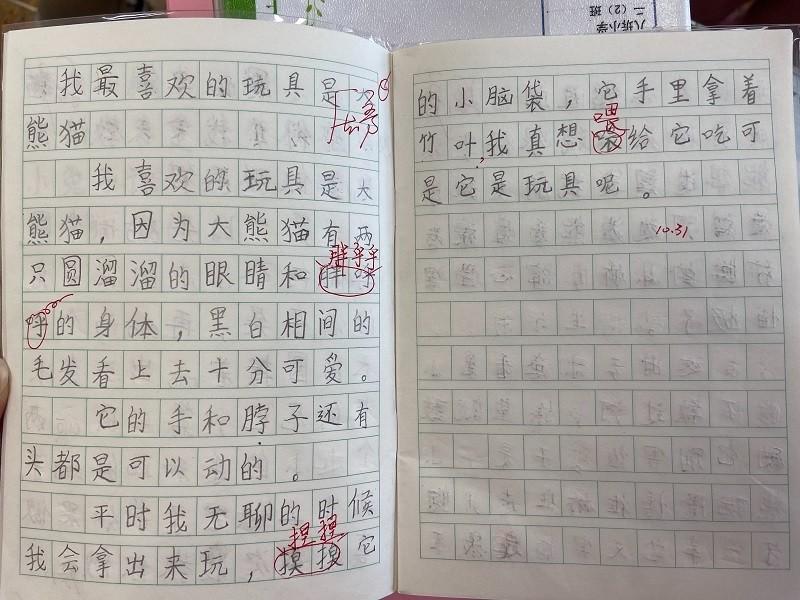 八坼小学
二（2）班
我最喜欢的玩具是大
熊猫
我喜欢的玩具是大
熊猫，因为大熊猫有两
只圆溜溜的眼睛和胖呼
胖乎乎
呼的身体，黑白相间的
毛发看上去十分可爱。
它的手和脖子还有
头都是可以动的。
平时我无聊的时候
捏捏
我会拿出来玩，摸摸它
的小脑袋，它手里拿着
喂
竹叶，我真想给它吃可
是它是玩具呢。
10.31